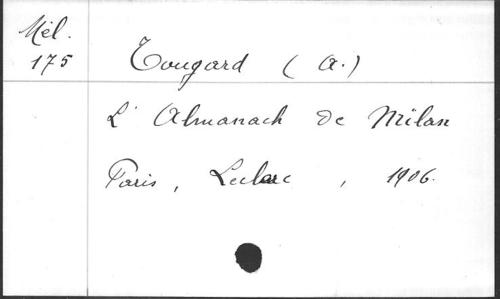 Mél.
175
Tougard (A.)
L'Almanach de Milan
Paris, Leclerc, 1906.